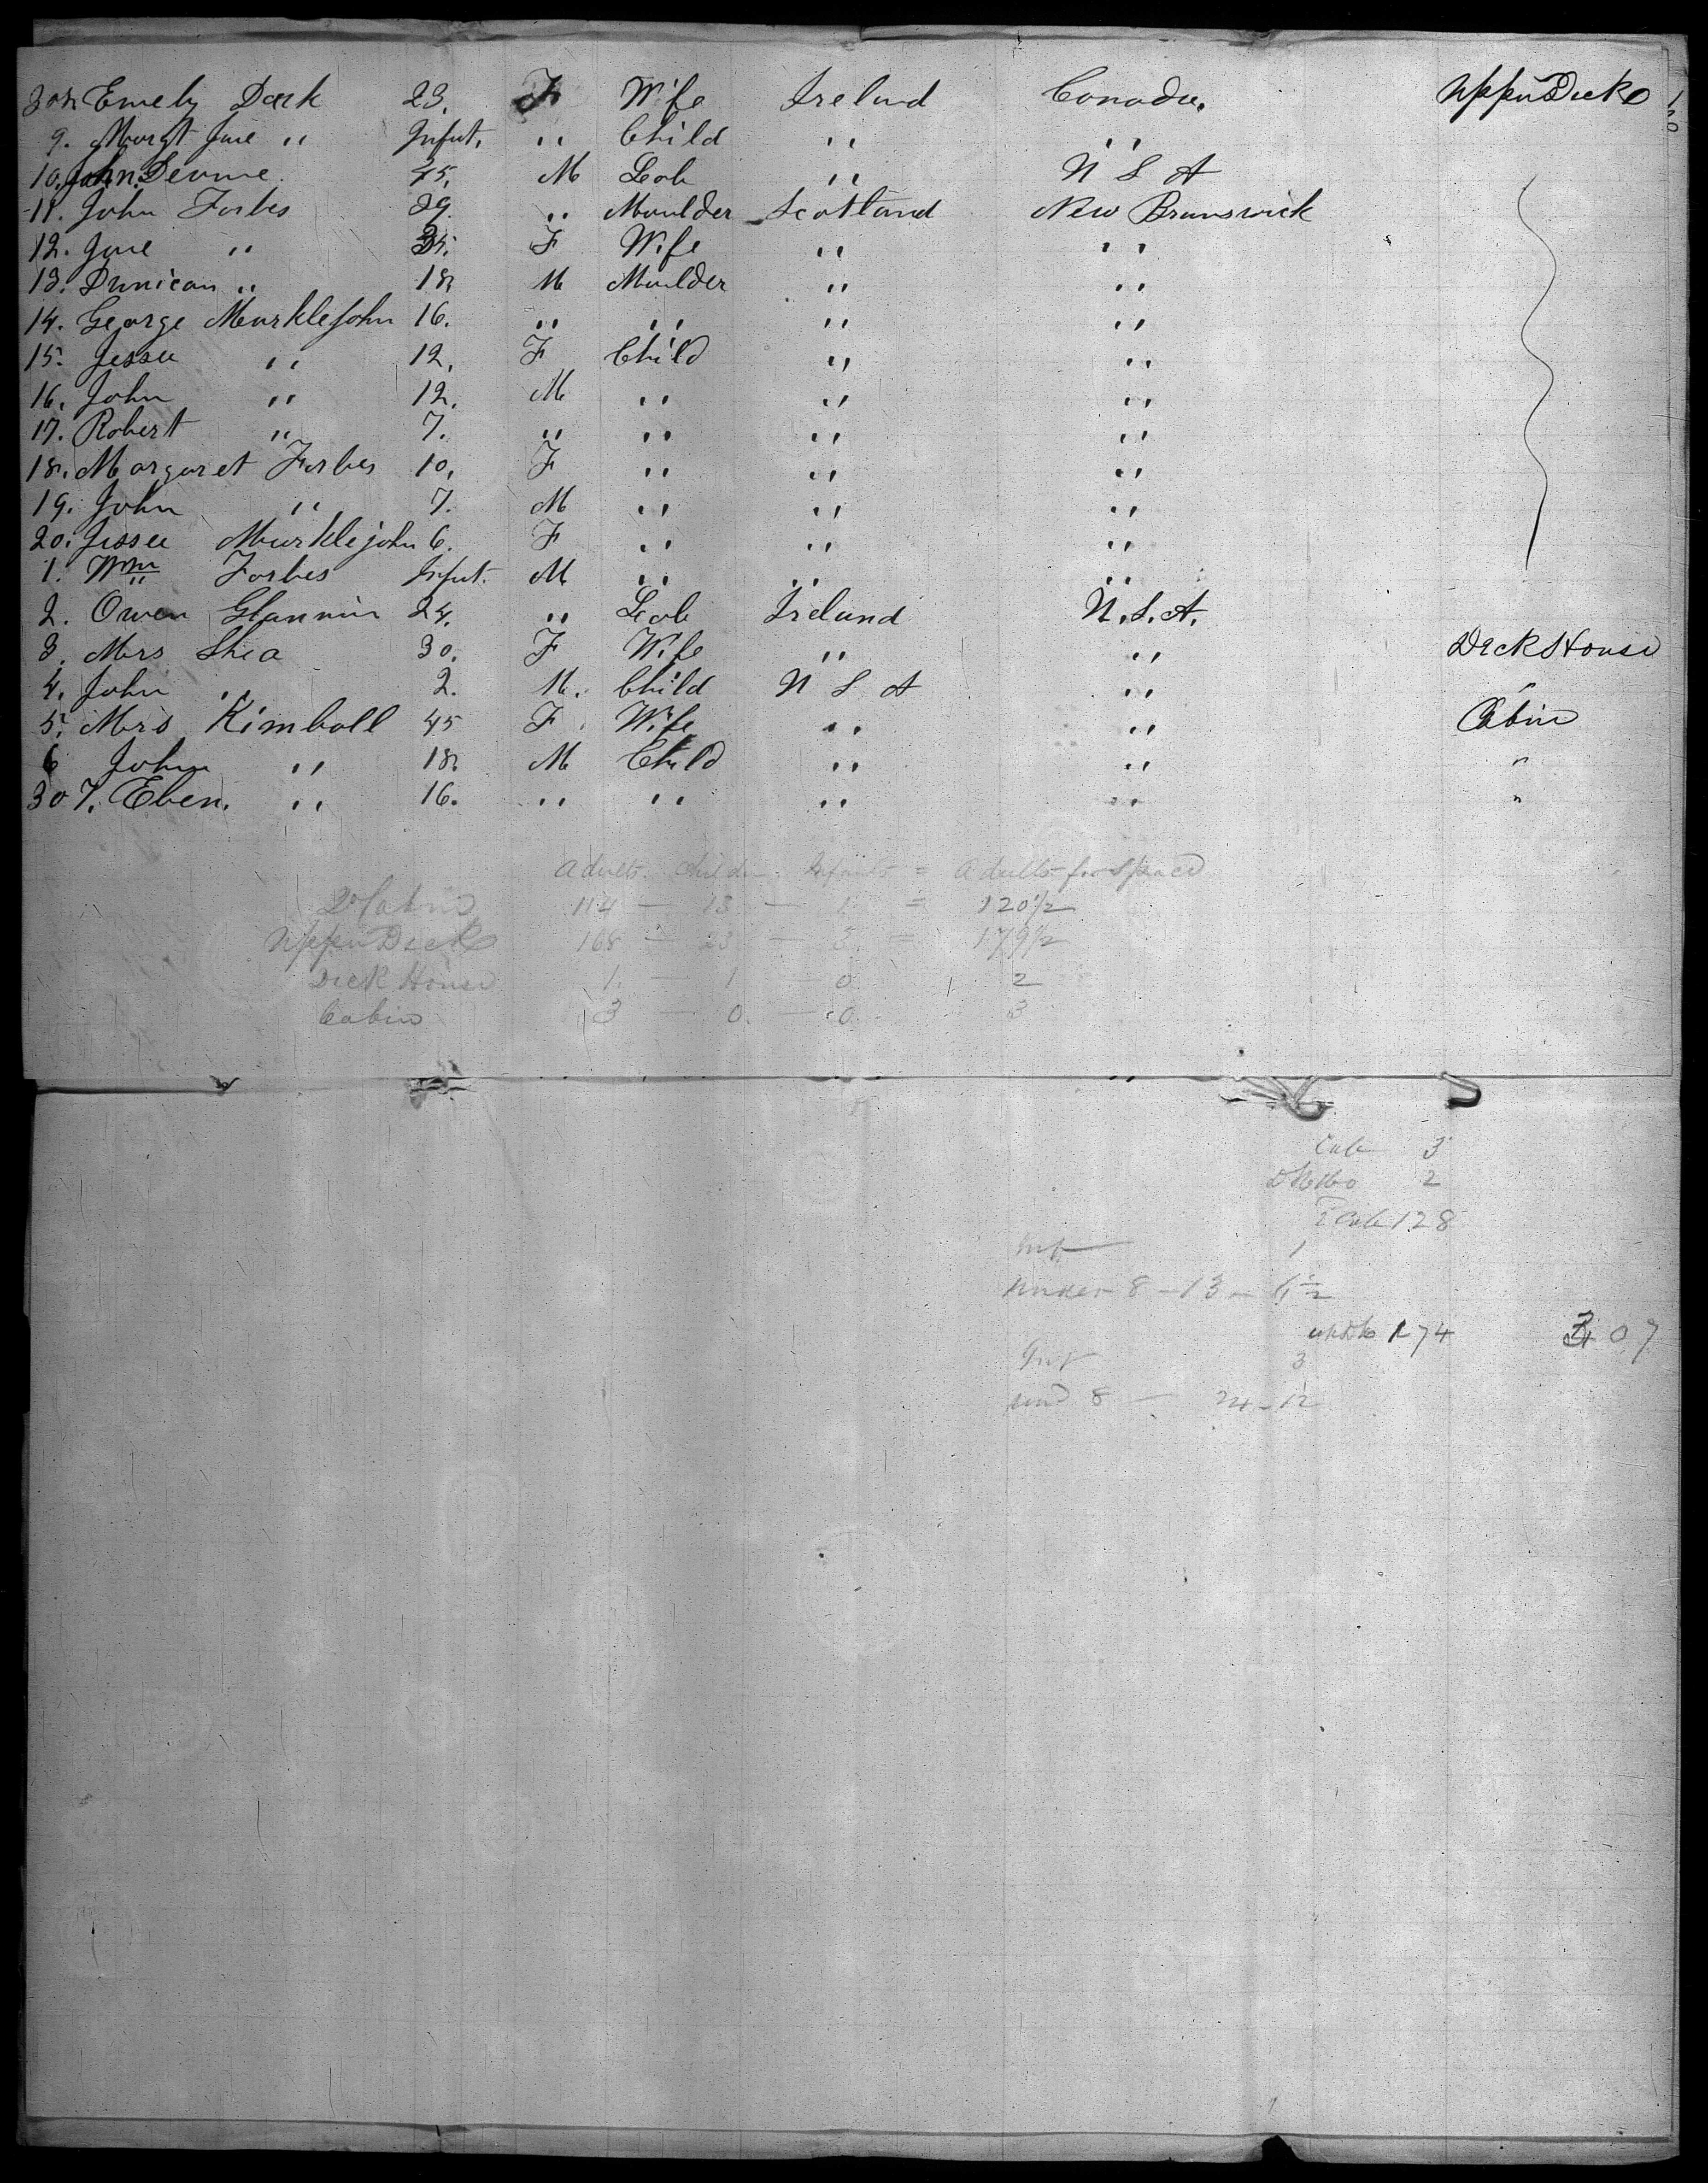 308 Emely Dark 23. F Wife Ireland Canada. Upper Deck
9. Margt Jane " Infnt. " Child " "
10. John Devine. 45. M Lab " U S A
11. John Forbes 39. " Moulder Scotland New Brunswick
12. Jane " 35. F Wife " "
13. Dunican " 18. M Moulder " "
14. George Murklejohn 16. " " " "
15. Jessee " 12. F Child " "
16. John " 12. M " " "
17. Robert " 7. " " " "
18. Margaret Forbes 10. F " " "
19. John " 7. M " " "
20. Jessee Murklejohn 6. F " " "
1. Wm Forbes Infnt. M " " "
2. Owen Glannin 24. " Lab Ireland U.S.A.
3. Mrs Shea 30. F Wife " " Deck House
4. John " 2. M. Child U S A " "
5. Mrs Kimball 45 F. Wife " " Cabin
6 John " 18. M Child " " "
307. Eben. " 16. " " " " "
Adults. Childn. Infants = Adults for Space
2d Cabin 114 — 13 — 1 = 120 1/2
Upper Deck 168 — 23 — 3 = 179 1/2
Deck House 1. — 1 — 0 2
Cabin 3 — 0. — 0. 3
Cab 3
Dk Ho 2
2 Cab 128
Inf 1
under 8 - 13 - 6 1/2
174 307
Inf 3
und 8 — 24 - 12